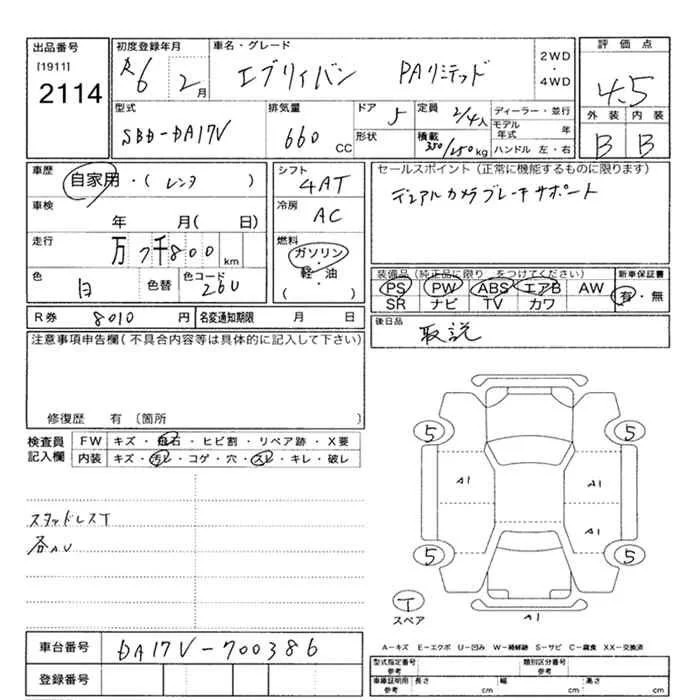 出品番号 初度登録年月 車名・グレード 2WD・4WD 評価点
[1911] R6 2月 エブリイバン PAリミテッド 4.5
2114
型式 排気量 ドア 5 定員 2/4人 ディーラー・並行 外装 内装
SBD-DA17V 660 CC 形状 積載 350/250kg モデル年式 年 B B
ハンドル 左・右
車歴 自家用・( レンタ ) シフト 4AT セールスポイント(正常に機能するものに限ります)
車検 年 月( 日) 冷房 AC デュアルカメラブレーキサポート
走行 万 7千800 km 燃料 ガソリン・軽・油 ( )
色 白 色替 色コード 26U
装備品(純正品に限り をつけてください) 新車保証書
PS PW ABS エアB AW 有・無
SR ナビ TV カワ
R券 8010 円 名変通知期限 月 日 後日品 取説
注意事項申告欄(不具合内容等は具体的に記入して下さい)
修復歴 有 〔箇所 〕
検査員記入欄 FW キズ・飛石・ヒビ割・リペア跡・X要
内装 キズ・汚レ・コゲ・穴・スレ・キレ・破レ
5 5
A1 A1
A1
5 5
スタッドレスT
各AU
T
スペア A1
A-キズ E-エクボ U-凹み W-補修跡 S-サビ C-腐食 XX-交換済
車台番号 DA17V-700386
登録番号
型式指定番号 参考 類別区分番号 参考
車庫証明用 参考 長さ cm 幅 cm 高さ cm